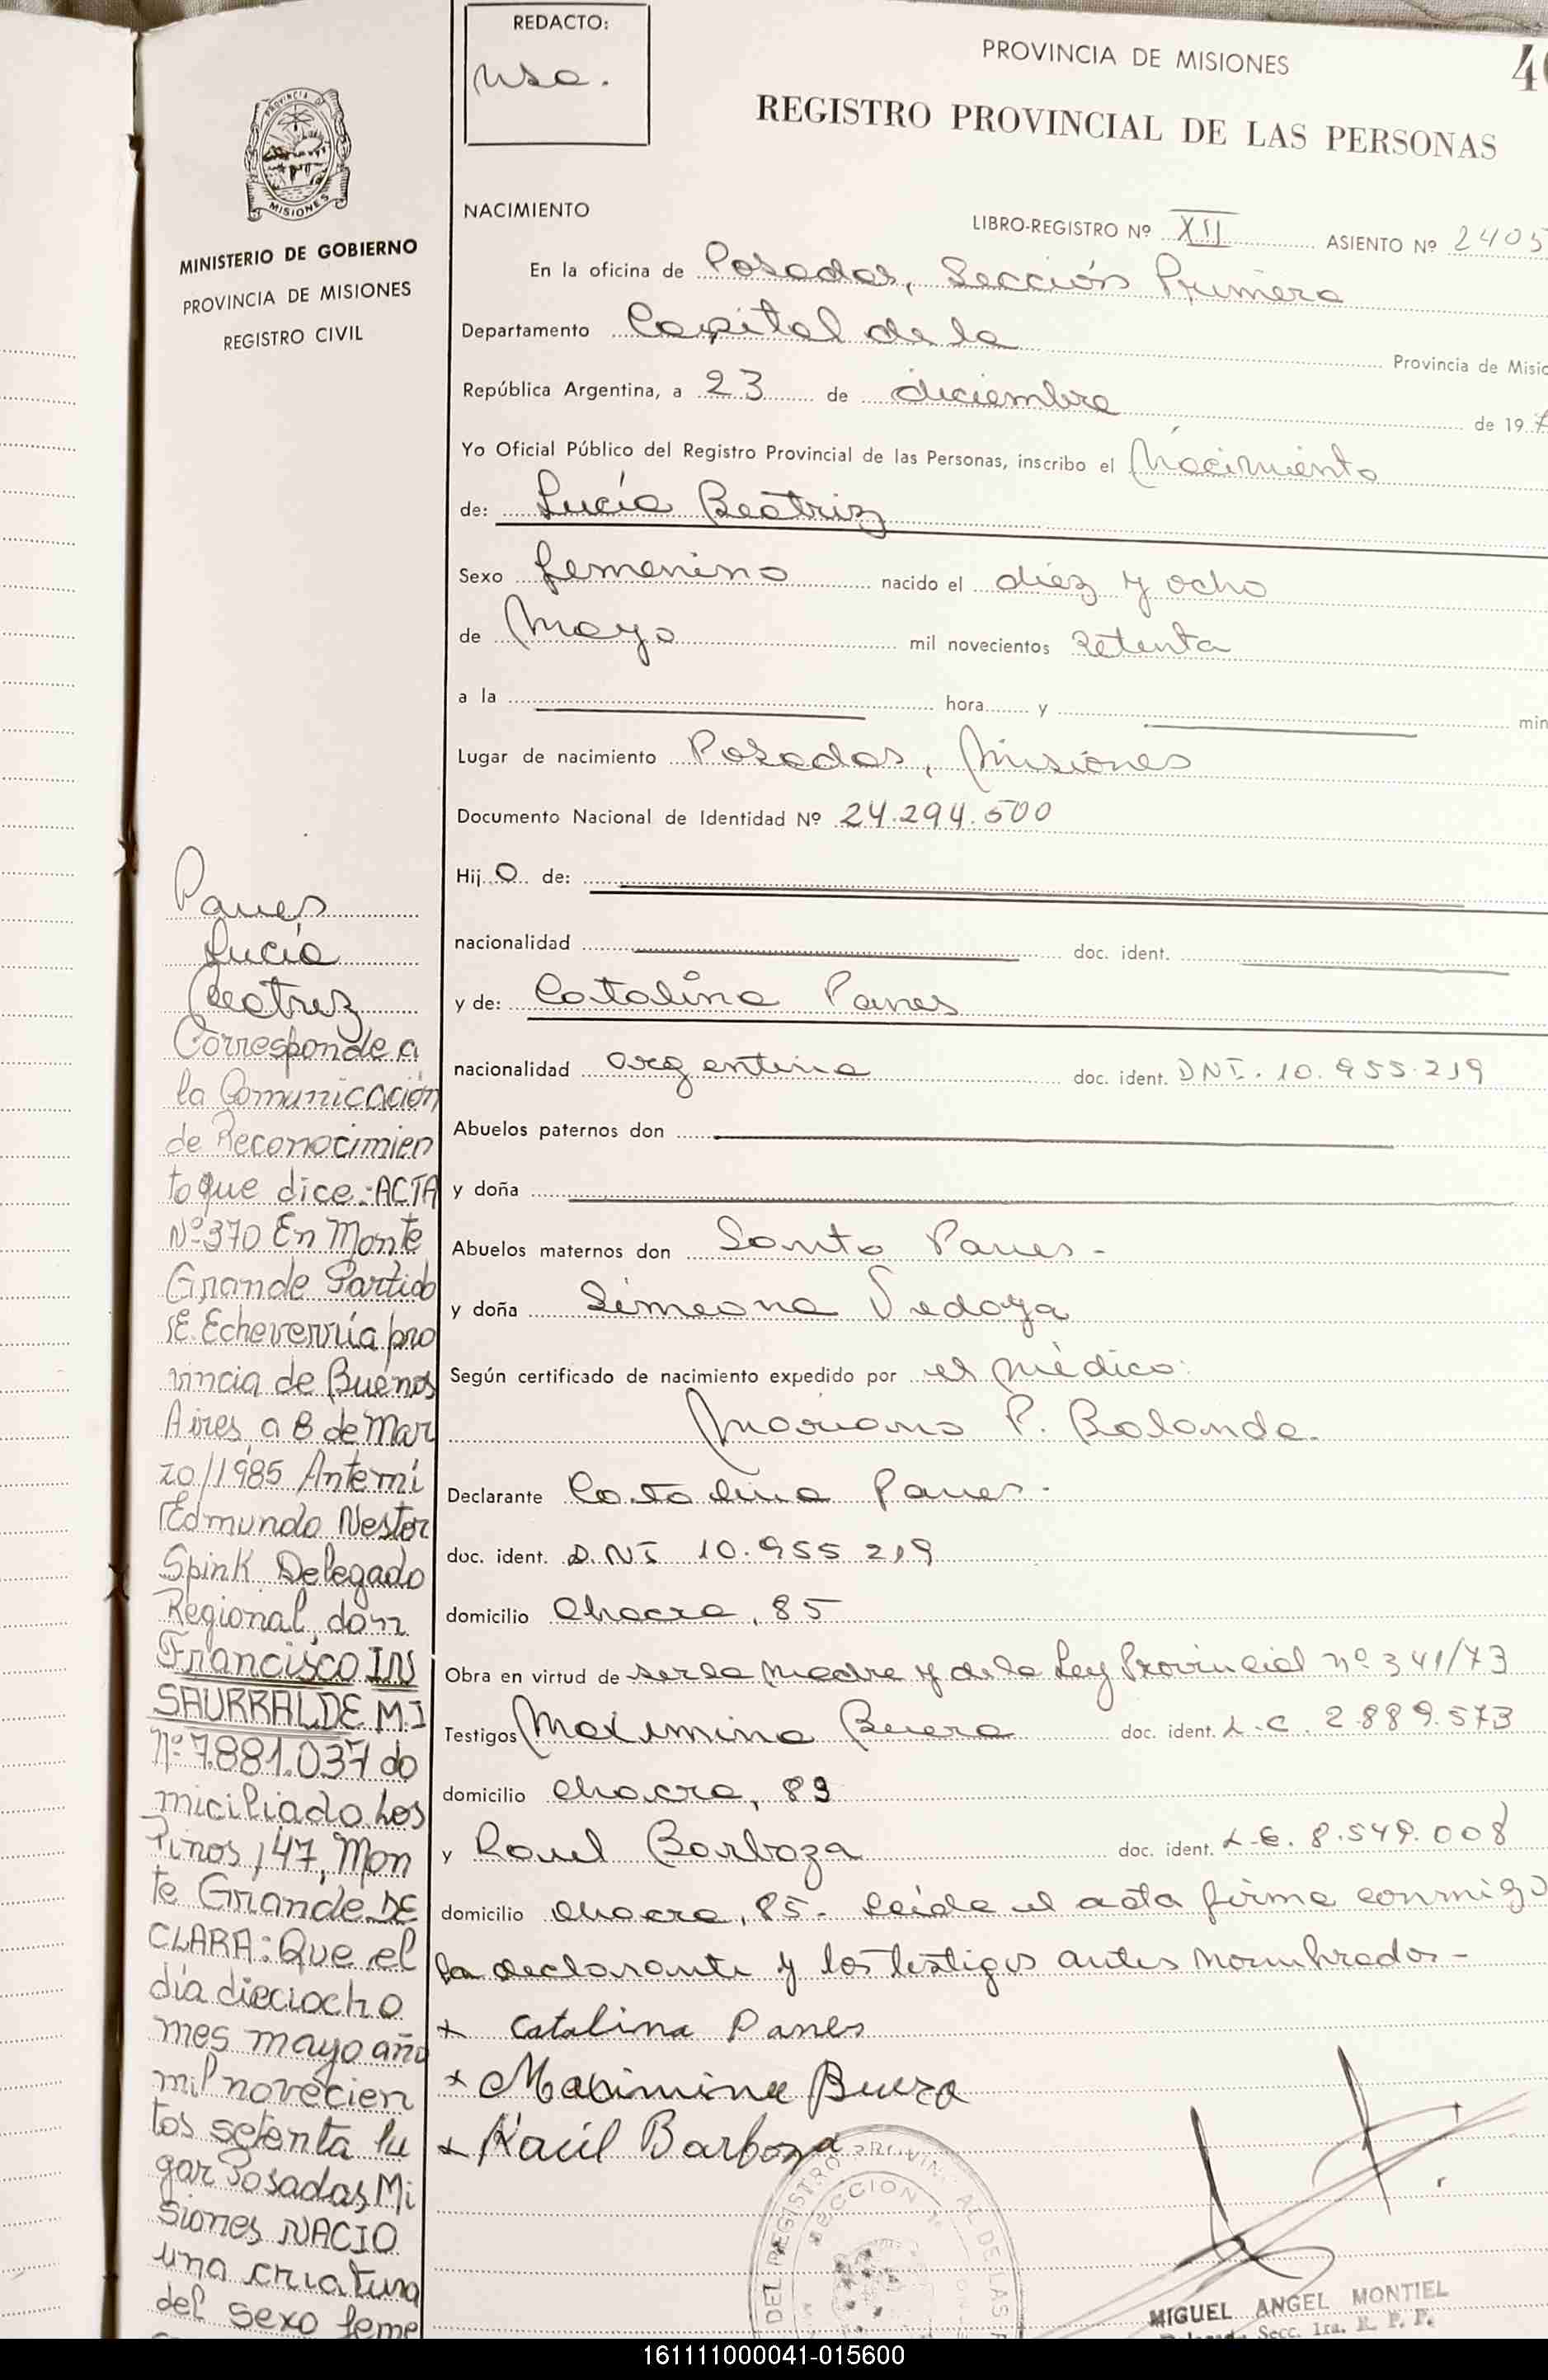 REDACTO:
PROVINCIA DE MISIONES
REGISTRO PROVINCIAL DE LAS PERSONAS
PROVINCIA D
MISIONES
MINISTERIO DE GOBIERNO
PROVINCIA DE MISIONES
REGISTRO CIVIL
NACIMIENTO
LIBRO-REGISTRO Nº XII ASIENTO Nº 2405
En la oficina de Posadas, Sección Primera
Departamento Capital de la Provincia de Misio
República Argentina, a 23 de diciembre de 197
Yo Oficial Público del Registro Provincial de las Personas, inscribo el Nacimiento
de: Lucía Beatriz
Sexo femenino nacido el diez y ocho
de Mayo mil novecientos setenta
a la hora y min
Lugar de nacimiento Posadas, Misiones
Documento Nacional de Identidad Nº 24.294.500
Hij o de:
nacionalidad doc. ident.
y de: Catalina Panes
nacionalidad argentina doc. ident. DNI. 10.955.219
Abuelos paternos don
y doña
Abuelos maternos don Santo Panes -
y doña Simeona Sedoya
Según certificado de nacimiento expedido por el médico:
Mariano P. Bolanda.
Declarante Catalina Panes.
doc. ident. D.NI 10.955 219
domicilio Chacra, 85
Obra en virtud de ser la madre y de la Ley Provincial nº 341/73
Testigos Maximina Buera doc. ident. L.C. 2.889.573
domicilio chacra, 89
y Raul Barboza doc. ident. L.E. 8.549.008
domicilio chacra, 85. Leída el acta firma conmigo
la declarante y los testigos antes nombrados -
x Catalina Panes
x Maximina Buera
x Raúl Barboza
Panes
Lucía
Beatriz
Corresponde a
la Comunicación
de Reconocimien
to que dice: ACTA
Nº 370 En Monte
Grande Partido
E. Echeverría pro
vincia de Buenos
Aires, a 8 de Mar
zo/1985 Antemí
Edmundo Nestor
Spink Delegado
Regional, don
Francisco IN
SAURRALDE M.I
Nº 7.881.037 do
miciliado Los
Pinos, 147, Mon
te Grande DE
CLARA: Que el
día dieciocho
mes mayo año
mil novecien
tos setenta lu
gar Posadas Mi
siones NACIO
una criatura
del sexo feme
MIGUEL ANGEL MONTIEL
Secc. 1ra. R. P. P.
161111000041-015600